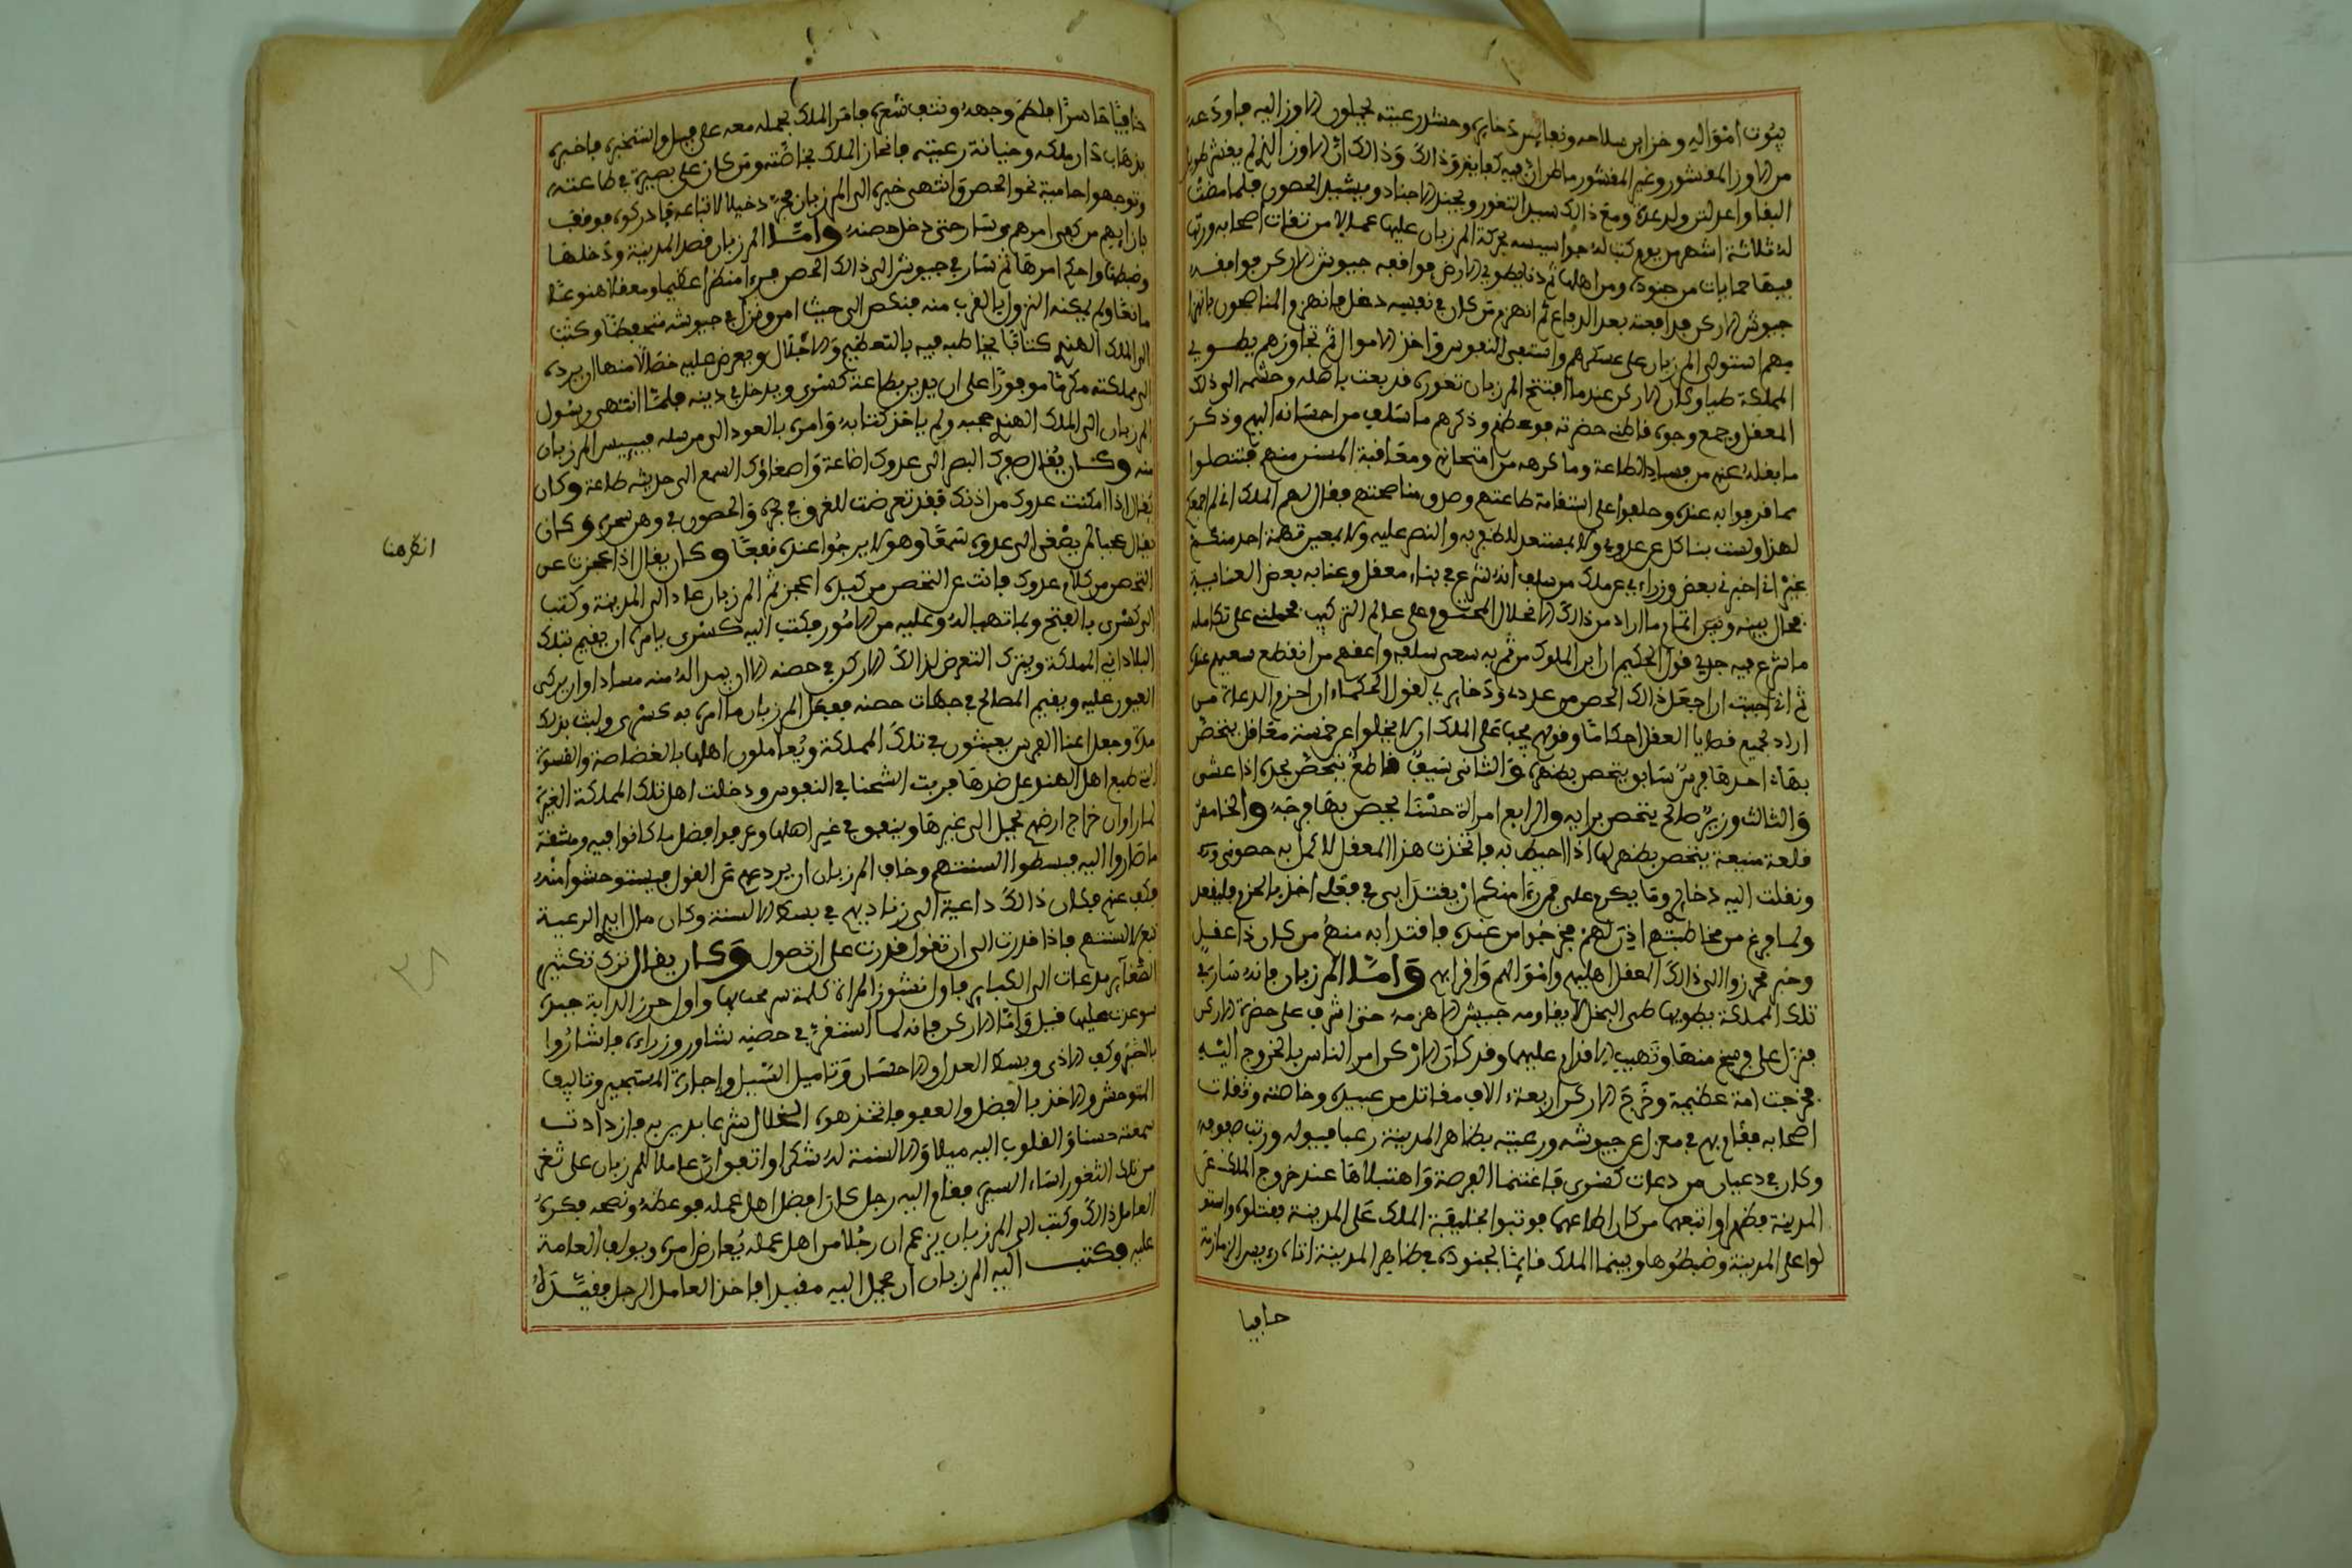 بيوت امواله وخزاين سلاحه ونفايس ذخايره وحشد رعيته يجبلون الاوز اليه فاودعه
من الاوز المقشور وغير المقشور ما ظن ان فيه كفايته وذالك ان الاوز الذي لم يقشر طويل
البقا واعد لذلك عدة ومع ذالك سد الثغور ويجند الاجناد ويشيد الحصون فلما مضت
له ثلاثة اشهر من يوم كتب له جواسيسه بحركة المرزبان عليها عمالا من ثقات اصحابه ورتب
فيها حمايات من جنوده ومن اهلها ثم دنا يطوي الارض فوافعه جيوش الاركن فوافقه
جيوش الاركن فدافعته بعد الدفاع ثم انهزم من كان في نفسه دغل فانهزم المناصحون بانهزا
مهم استولى المرزبان على عسكرهم واستبقى النفوس واخذ الاموال ثم تجاوزهم يطوي
المملكة طيا وكان الاركن عندما افتتح المرزبان ثغوره قد بعث باهله وحشمه الى ذلك
المعقل وجمع وجوه قاطني حضرته فوعظهم وذكرهم ما سلف من احسانه اليهم وذكر
ما نقل له عنهم من فساد الطاعة وما كرهه من امتحانهم ومعاقبة المسئ منهم فتنصلوا
مما قرفوا به عنده وحلفوا على استقامة طاعتهم وصدق مناصحتهم فقال لهم الملك اني لم اجمعكم
لهذا ولست بناكل عن عدوي ولا بمستعد للظفر به والنصر عليه ولا بمعير تهمة احد منكم
غير اني اخبرني بعض وزراءي عن ملك من سلف انه شرع في بناء معقل وعنا به بعض العناية
فحال بينه وبين اتمام ما اراد من ذالك الانحلال المحتوم على عالم التركيب فحملني على تكامله
ما شرع فيه جدي قول الحكيم ان ابر الملوك من تم به سعي سلفه واعقهم من انقطع سعيهم عنده
ثم اني احببت ان اجعل ذالك الحصن من عددي وذخايري لقول الحكماء ان احزم الدعاة من
اراد لجميع قضايا العقل احكاما وقولهم يجب على الملك ان لا يخلوا عن خمسة معاقل يتحصن
بها احدها فرس سابق يتحصن بظهره والثاني سيف قاطع يتحصن بحده اذا غشى
والثالث وزير صالح يتحصن برايه والرابع امراة حسنا يحصن بها فرجه والخامس
قلعة منيعة يتحصن بظهرها اذا احيط به فاتخذت هذا المعقل لاكمل به حصوني
ونقلت اليه ذخايري وما يكرم علي فمن راى منكم ان يقتدى بي في فعلي اخذ بالحزم فليفعل
ولما فرغ من مخاطبتهم اذن لهم فخرجوا من عنده فاقتدا به منهم من كان ذا عقل
وخبر فحرزوا الى ذالك المعقل اهليهم واموالهم واقرابهم واما المرزبان فانه سار في
تلك المملكة يطويها طي السجل لا يقاومه جيش الا هزمه حتى اشرف على حضرة الاركن
فنزل على فرسخ منها وتهيب الاقدام عليها وقد كان الاركن امر الناس بالخروج اليه
فخرجت امة عظيمة وخرج الاركن اربعة الاف مقاتل من عبيده وخاصته وثقات
اصحابه فقام بهم في معزل عن جيوشه ورعيته بظاهر المدينة رعبا فيوله ورتب صفوفه
وكان في دعيان من دعات كسرى فاغتنما الفرصة واهتبلاها عند خروج الملك عن
المدينة فظهرا واتبعهما من كان اطاعهما فوثبوا بخليفة الملك على المدينة فقتلوه واستو
لوا على المدينة وضبطوها وبينما الملك قايما بجنوده في ظاهر المدينة اتاه رييس الزمازمة
حافيا
حافيا حاسرا ملطم وجهه ونتف شعره فامر الملك بحمله معه على فيل واستخبره فاخبره
بذهاب دار ملكه وخيانة رعيته فانحاز الملك بخاصته ومن كان على بصيرة في طاعته
وتوجهوا حامية نحو الحصن وانتهى خبره الى المرزبان فجرد خيلا لاتباعه فادركوه فوقف
بازايهم من كفى امرهم وسار حتى دخل حصنه واما المرزبان قصد المدينة ودخلها
وضبطها واحكم امرها ثم سار في جيوشه الى ذالك الحصن فراى منظرا عظيما ومعقلا هنوعا
مانعا ولم يمكنه النزول بالقرب منه فنكص الى حيث امن ونزل في جيوشه متحفظا وكتب
الى الملك الهندي كتابا يخاطبه فيه بالتعظيم والاجلال ويعرض عليه خصالا منها ان يرده
الى مملكته مكرما موفورا على ان يدين بطاعة كسرى ويدخل في دينه فلما انتهى رسول
المرزبان الى الملك الهندي حجبه ولم ياخذ كتابه وامره بالعود الى مرسله فييس المرزبان
منه وكان يقال صرفك البصر الى عدوك اضاعة واصغاؤك السمع الى حديثه طاعة وكان
يقال اذا امكنت عدوك من اذنك فقد تعرضت للغرق في بحره والحصول في وهن سحره وكان
يقال عجبا لم يصغى الى عدوه سمعا وهو لا يرجوا عنده نفعا وكان يقال اذا عجزت عن
التحصن من كلام عدوك فانت عن التحصن من كيده اعجز ثم المرزبان عاد الى المدينة وكتب
الى كسرى بالفتح ولما تهيا له وعليه من الامور فكتب اليه كسرى يامره ان يقيم بتلك
البلاد في المملكة ويترك التعرض لذالك الاركن في حصنه الا ان يبدا له منه فسادا وان يركى
العيون عليه ويقيم المصالح في جهات حصنه ففعل المرزبان ما امره به كسرى ولبث بذلك
مدة وجعل اعنا الفرس يعيثون في تلك المملكة ويعاملون اهلها بالفضاضة والقسوة
التي طبع اهل الهند على ضدها فربت الشحنا في النفوس ودخلت اهل تلك المملكة الغيرة
لما راوا ان خراج ارضهم يحمل الى غيرها وينفق في غير اهلها وعرفوا فضل ما كانوا فيه ومشقة
ما صاروا اليه فبسطوا السنتهم وخاف المرزبان ان يردعهم عن القول فيستوحشوا منه
فكف عنهم فكان ذالك داعية الى زياديهم في بسط الالسنة وكان مال ايدي الرعية
تبع لالسنتهم فاذا قدرت الى ان تقول قدرت على ان تصول وكان يقال ترك تكثير
الصغاير مدعات الى الكباير فاول نشوز المراة كلمة سومحت بها واول حزن الدابة حيدة
سوعدت عليها قيل واما الاركن فانه لما استقر في حصنه شاور وزراءه فاشاروا
بالصبر وكف الاذى وبسط العدل والاحسان وتاميل السبيل واجارة المستجير وتاليف
المتوحش والاخذ بالفضل والعفو فاتخذ هذه الخلال شرعا يدين به فازدادت
سمعته حسنا والقلوب اليه ميلا والالسنة له شكرا واتفق ان عاملا للمرزبان على ثغر
من تلك الثغور اساء السيرة فقام اليه رجل كان افضل اهل عمله فوعظه ونصحه فكره
العامل ذالك وكتب الى المرزبان يزعم ان رجلا من اهل عمله يعارض امره ويولف العامة
عليه فكتب اليه المرزبان ان يحمل اليه مقيدا فاخذ العامل الرجل فقيده
انظر هنا